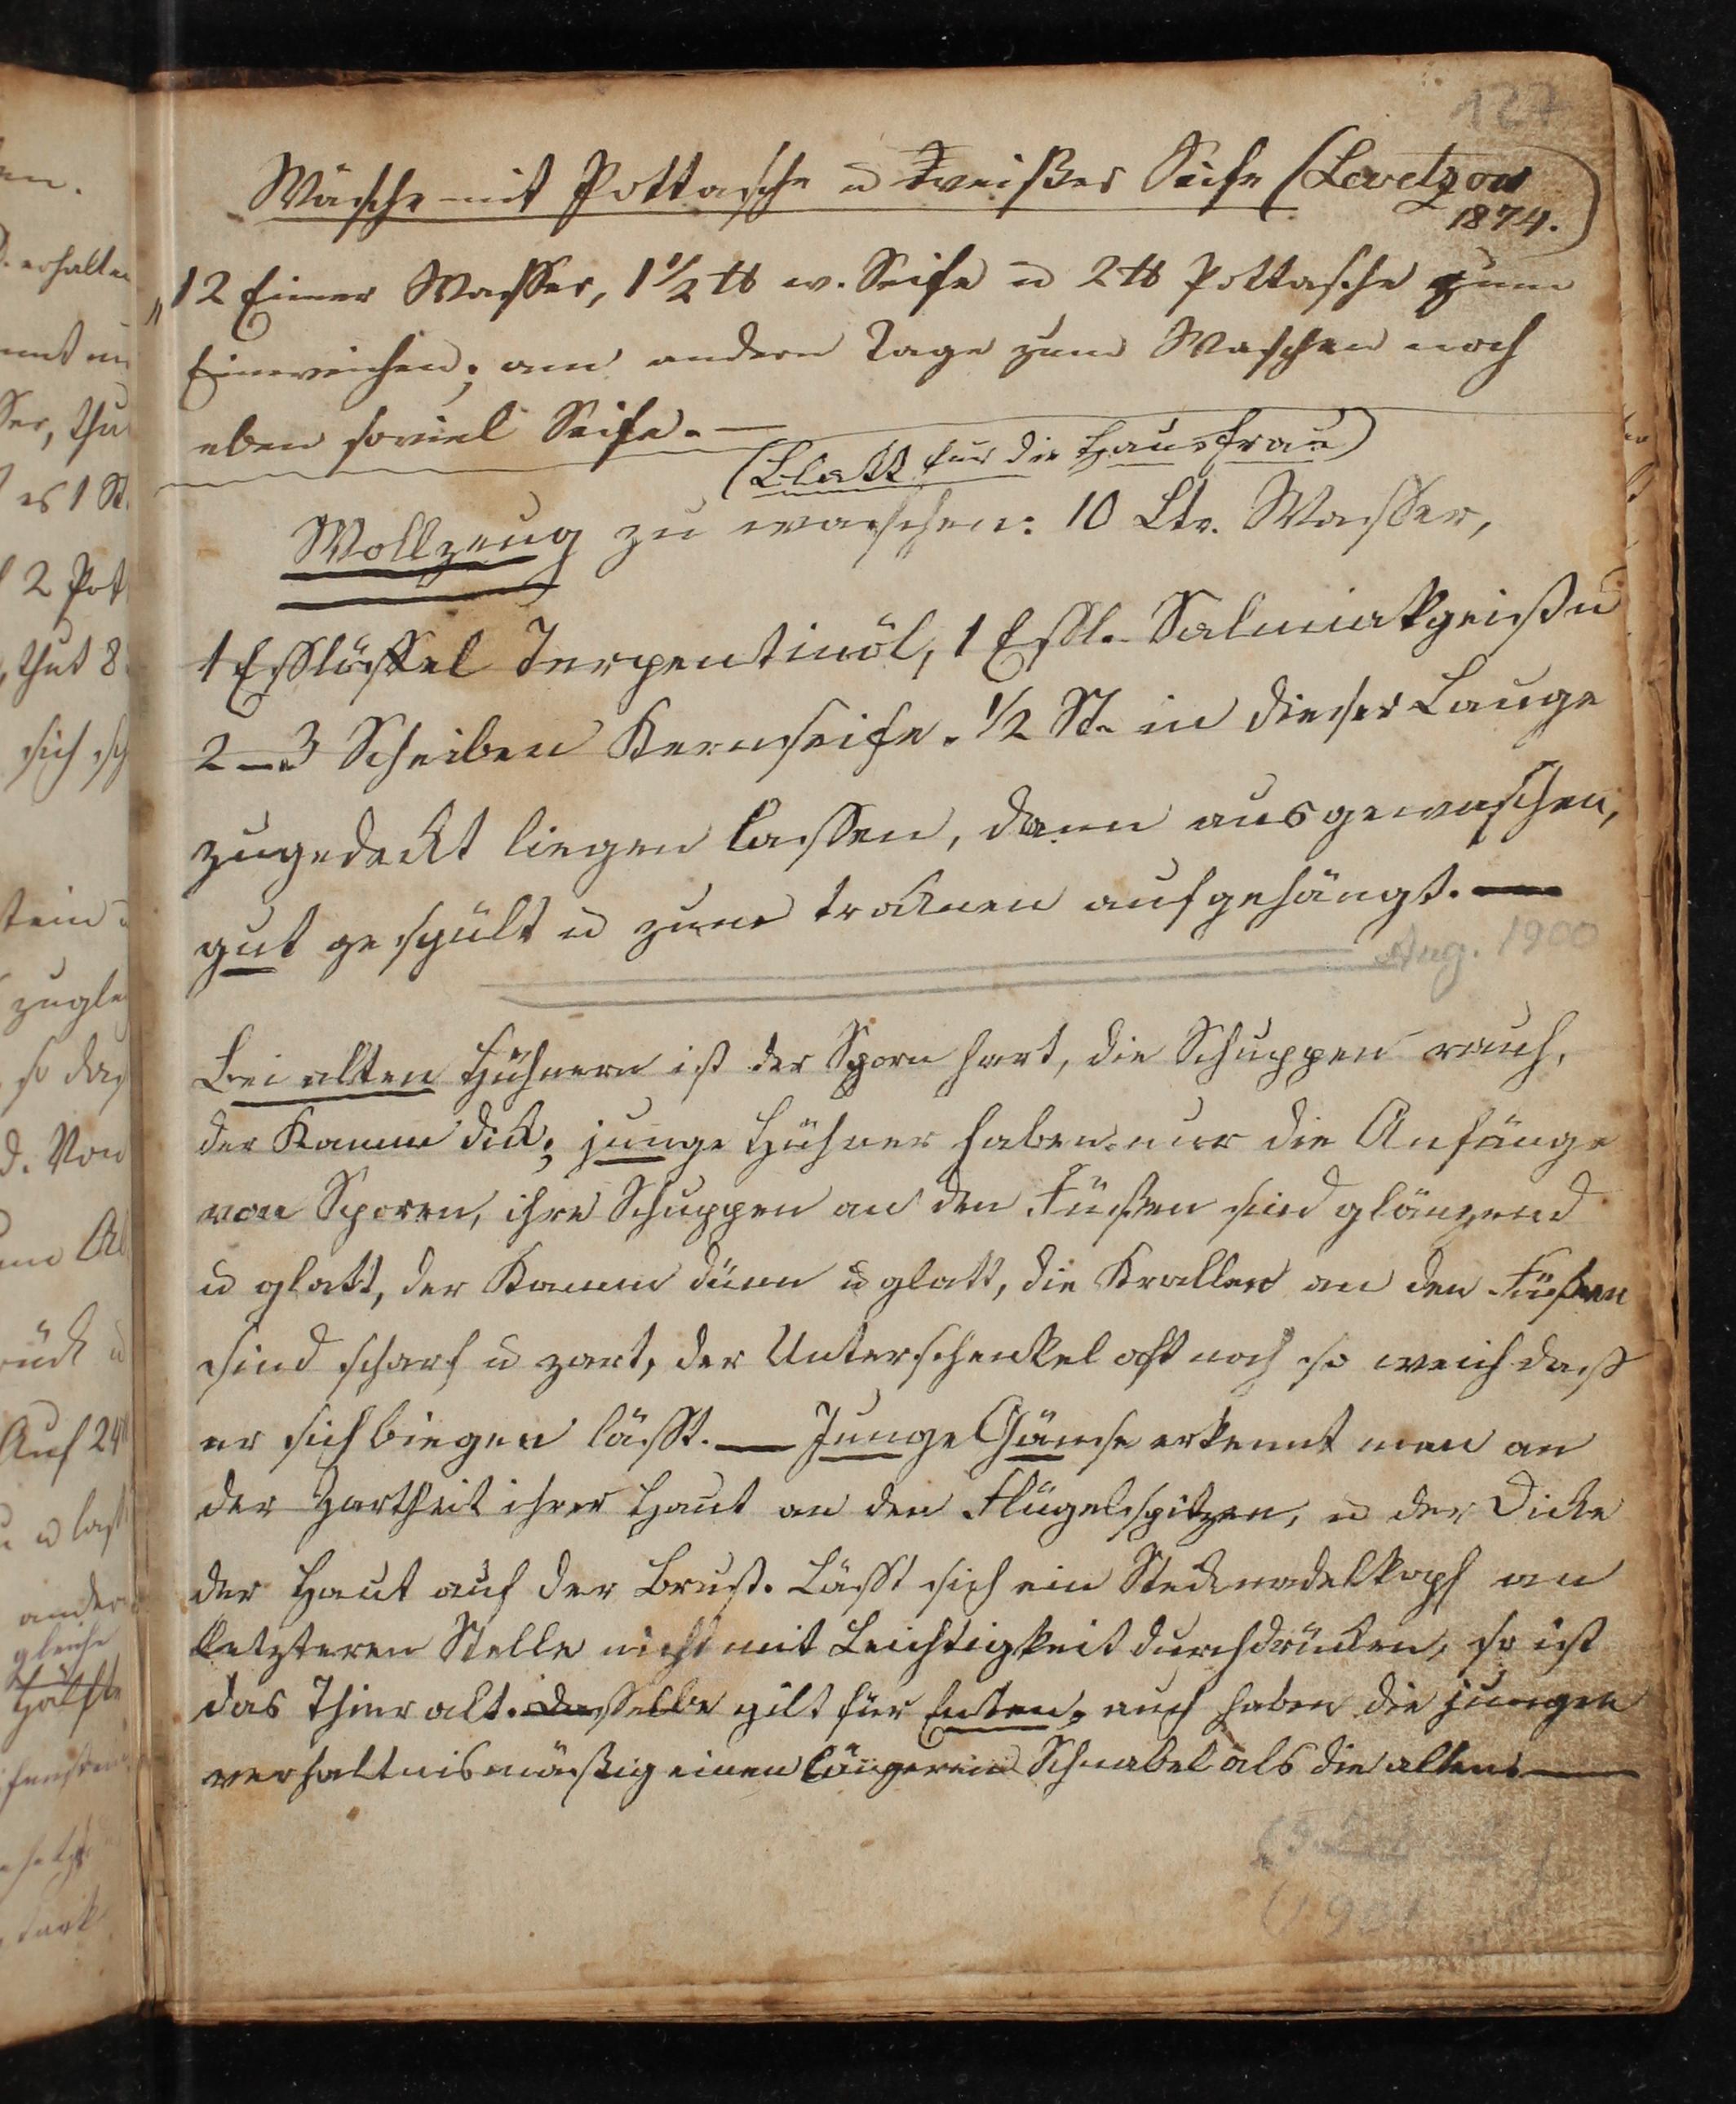 127
Wäsche mit Pottasche u weißer Seife (Levetzow
1874.)
"12 Eimer Wasser, 1 1/2 ℔ w. Seife u 2 ℔ Pottasche zum
Einweichen; am andern Tage zum Waschen noch
eben soviel Seife. —
(Blatt für die Hausfrau)
Wollzeug zu waschen: 10 Ltr. Wasser,
1 Esslöffel Terpentinöl, 1 Essl. Salmiakgeist u
2–3 Scheiben Kernseife. 1/2 St. in dieser Lauge
zugedeckt liegen lassen, dann ausgewaschen,
gut gespült u zum trocknen aufgehängt. —
Aug. 1900
Bei alten Hühnern ist der Sporn hart, die Schuppen rauh,
der Kamm dick; junge Hühner haben nur die Anfänge
von Sporen, ihre Schuppen an den Füßen sind glänzend
u glatt, der Kamm dünn u glatt, die Krallen an den Füßen
sind scharf u zart, der Unterschenkel oft noch so weich dass
er sich biegen lässt. — Junge Gänse erkennt man an
der Zartheit ihrer Haut an den Flügelspitzen, u der Dicke
der Haut auf der Brust. Lässt sich ein Stecknadelkopf an
letzteren Stelle nicht mit Leichtigkeit durchdrücken, so ist
das Thier alt. Dasselbe gilt für Enten, auch haben die jungen
verhaltnismäßig einen längeren Schnabel als die alten. —
1901